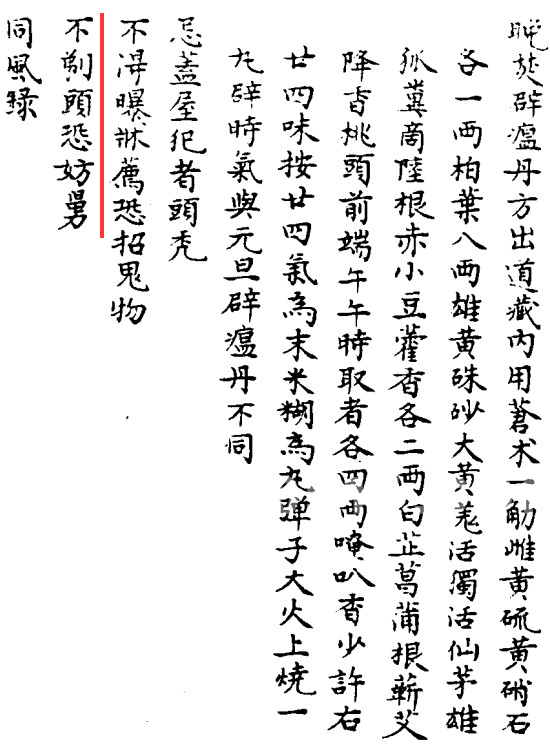 晚焚辟瘟丹方出道藏內用蒼术一觔雌黃硫黃硝石
各一两柏葉八两雄黃硃砂大黃羗活獨活仙茅雄
狐糞商陸根赤小豆藿香各二两白芷菖蒲根蘄艾
降香桃頭前端午午時取者各四两唵叭香少許右
廿四味按廿四氣為末米糊為丸彈子大火上燒一
丸辟時氣與元旦辟瘟丹不同
忌蓋屋犯者頭禿
不淂曝牀薦恐招鬼物
不剃頭恐妨舅
同風録